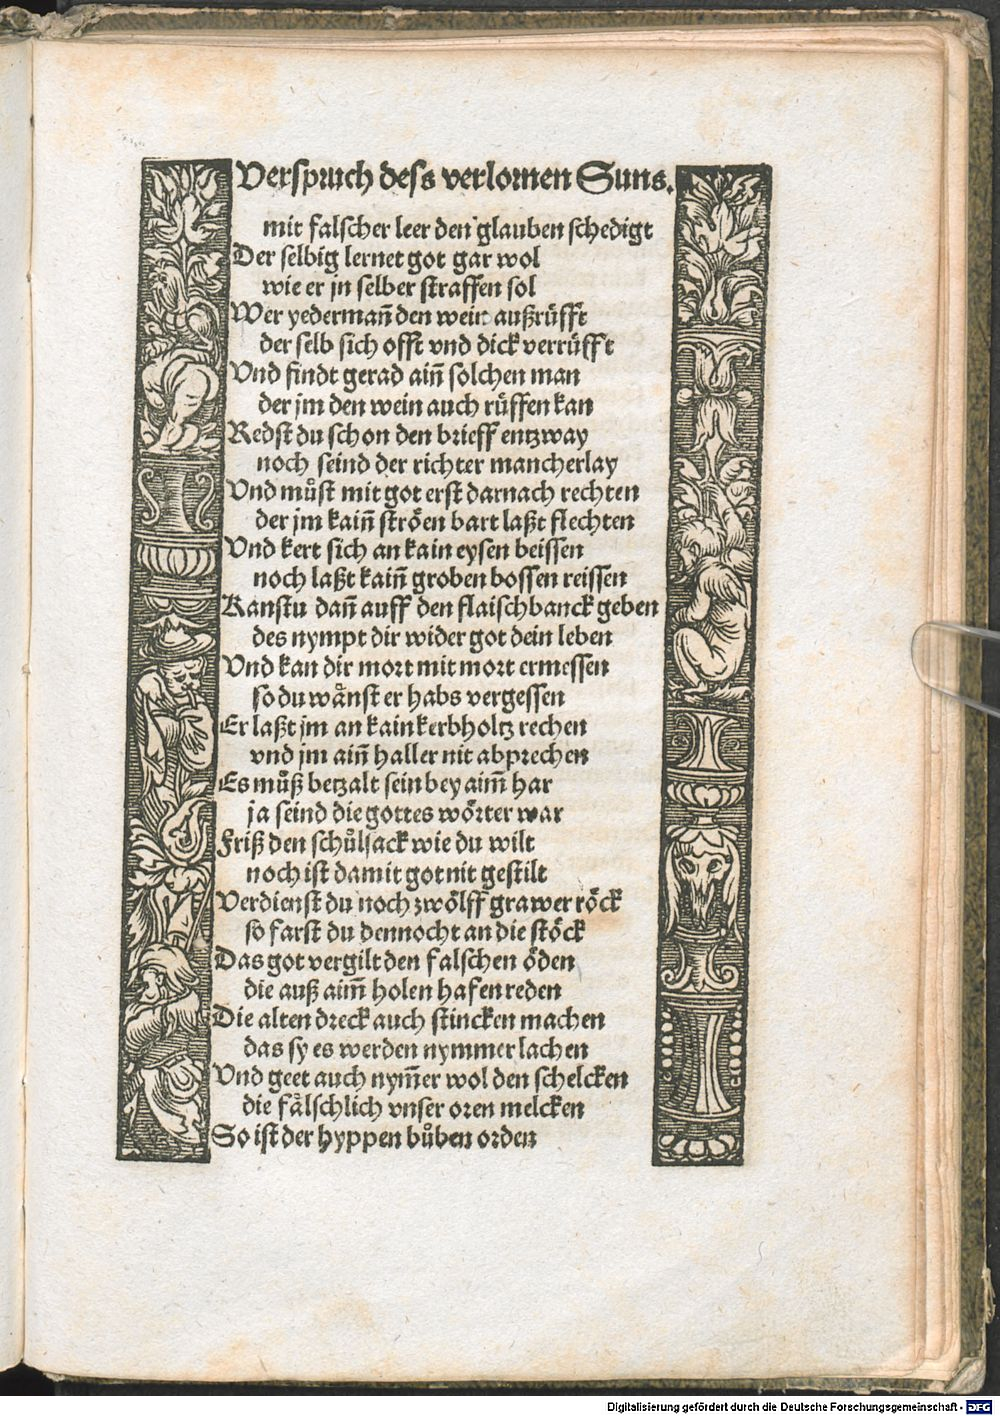 Verspruch dess verlornen Suns.
mit falscher leer den glauben schedigt
Der selbig lernet got gar wol
wie er jn selber straffen sol
Wer yedermañ den wein außrüfft
der selb sich offt vnd dick verrüfft
Vnd findt gerad aiñ solchen man
der jm den wein auch rüffen kan
Redst du schon den brieff entzway
noch seind der richter mancherlay
Vnd můst mit got erst darnach rechten
der jm kaiñ ströen bart laßt flechten
Vnd kert sich an kain eysen beissen
noch laßt kaiñ groben bossen reissen
Kanstu dañ auff den flaischbanck geben
des nympt dir wider got dein leben
Vnd kan dir mort mit mort ermessen
so du wånst er habs vergessen
Er laßt jm an kain kerbholtz rechen
vnd jm aiñ haller nit abprechen
Es můß betzalt sein bey aim̃ har
ja seind die gottes wörter war
Friß den schůlsack wie du wilt
noch ist damit got nit gestilt
Verdienst du noch zwölff grawer röck
so farst du dennocht an die stöck
Das got vergilt den falschen öden
die auß aim̃ holen hafen reden
Die alten dreck auch stincken machen
das sy es werden nymmer lachen
Vnd geet auch nym̃er wol den schelcken
die fålschlich vnser oren melcken
So ist der hyppen bůben orden
Digitalisierung gefördert durch die Deutsche Forschungsgemeinschaft - DFG